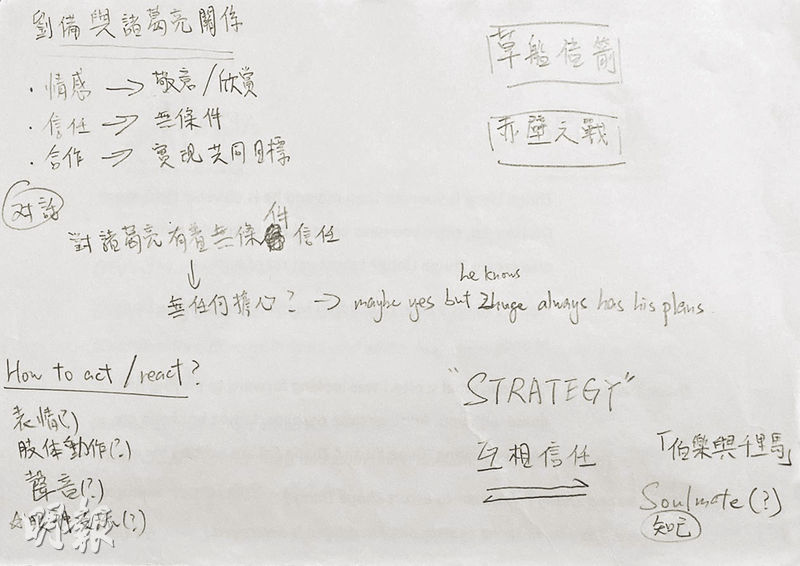 劉備與諸葛亮關係
· 情感 → 敬意/欣賞
· 信任 → 無條件
· 合作 → 實現共同目標
草船借箭
赤壁之戰
对話
對諸葛亮有着無條件信任
↓
無任何擔心? → maybe yes but he knows Zhuge always has his plans.
How to act/react?
表情(?)
肢体動作(?)
聲音(?)
☆眼神交流(?)
"STRATEGY"
互相信任
「伯樂與千里馬」
Soulmate(?)
知己
明報